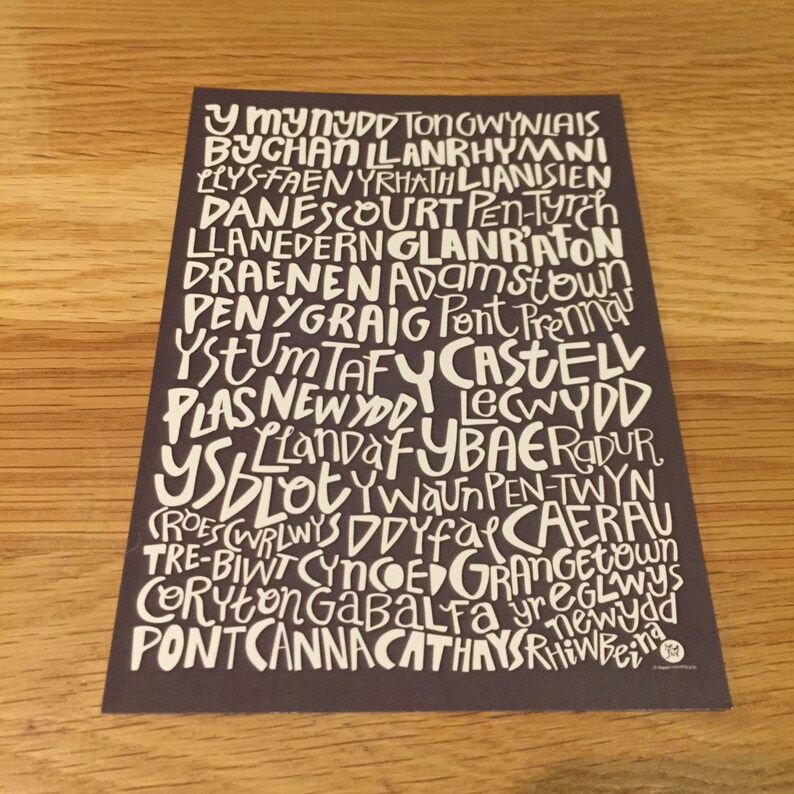 Y MYNYDD TONGWYNLAIS
BYCHAN LLANRHYMNI
LLYS-FAEN Y RHATH LIANISIEN
DANESCOURT Pen-Tyrch
LLANEDERN GLANR'AFON
DRAENEN Adamstown
PEN Y GRAIG Pont Prennau
YStUm TAF Y CAStELL
PLAS NEWYDD LeCWYDD
Llandaf Y BAE RaDUR
YSbLOt Y WaUn PEN-TWYN
CROES CWRLWYS DDYfaL CAERAU
TRE-BIWT CYnCOED GRAnGEtown
CORYtOn GaBaLfa yr eGLWYS newydd
PONTCANNA CATHAYS RHiWBeina